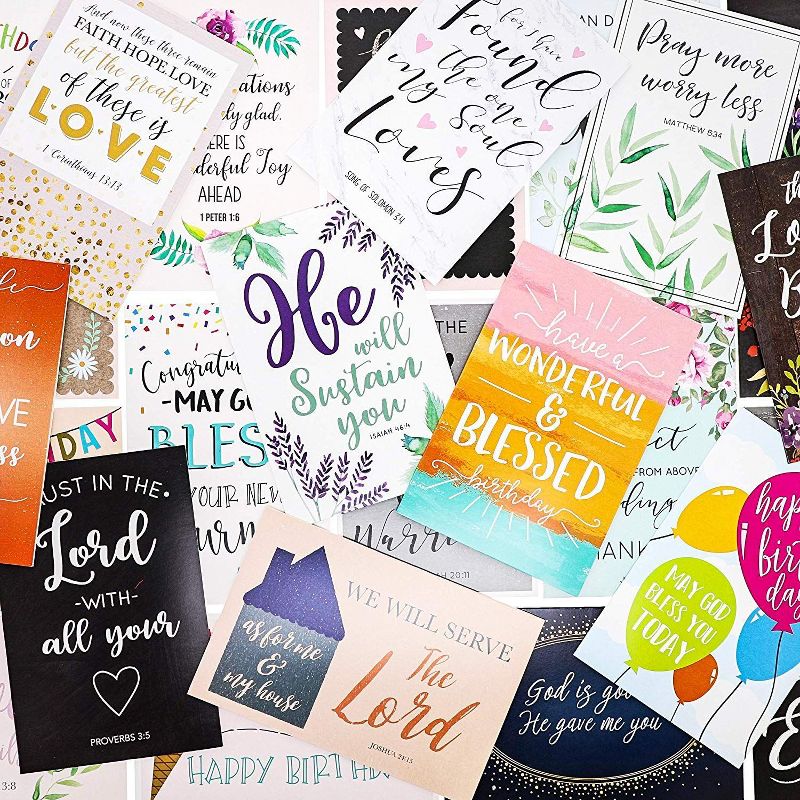 And now these three remain
FAITH, HOPE, LOVE
but the greatest
of these is
LOVE
1 Corinthians 13:13
ly glad.
ERE IS
derful Joy
AHEAD
1 PETER 1:6
for I have
Found
the one
my Soul
Loves
SONG OF SOLOMON 3:4
Pray more
worry less
MATTHEW 6:34
He
will
Sustain
you
ISAIAH 46:4
have a
WONDERFUL
&
BLESSED
birthday
Congratul
-MAY GO
BLES
YOUR NEW
THE
20:11
FROM ABOVE
UST IN THE
Lord
-WITH-
all your
PROVERBS 3:5
as for me
&
my house
WE WILL SERVE
The
Lord
JOSHUA 24:15
happ
birt
day
MAY GOD
BLESS YOU
TODAY
God is goo
He gave me you
HAPPY BIRTHD
3:8